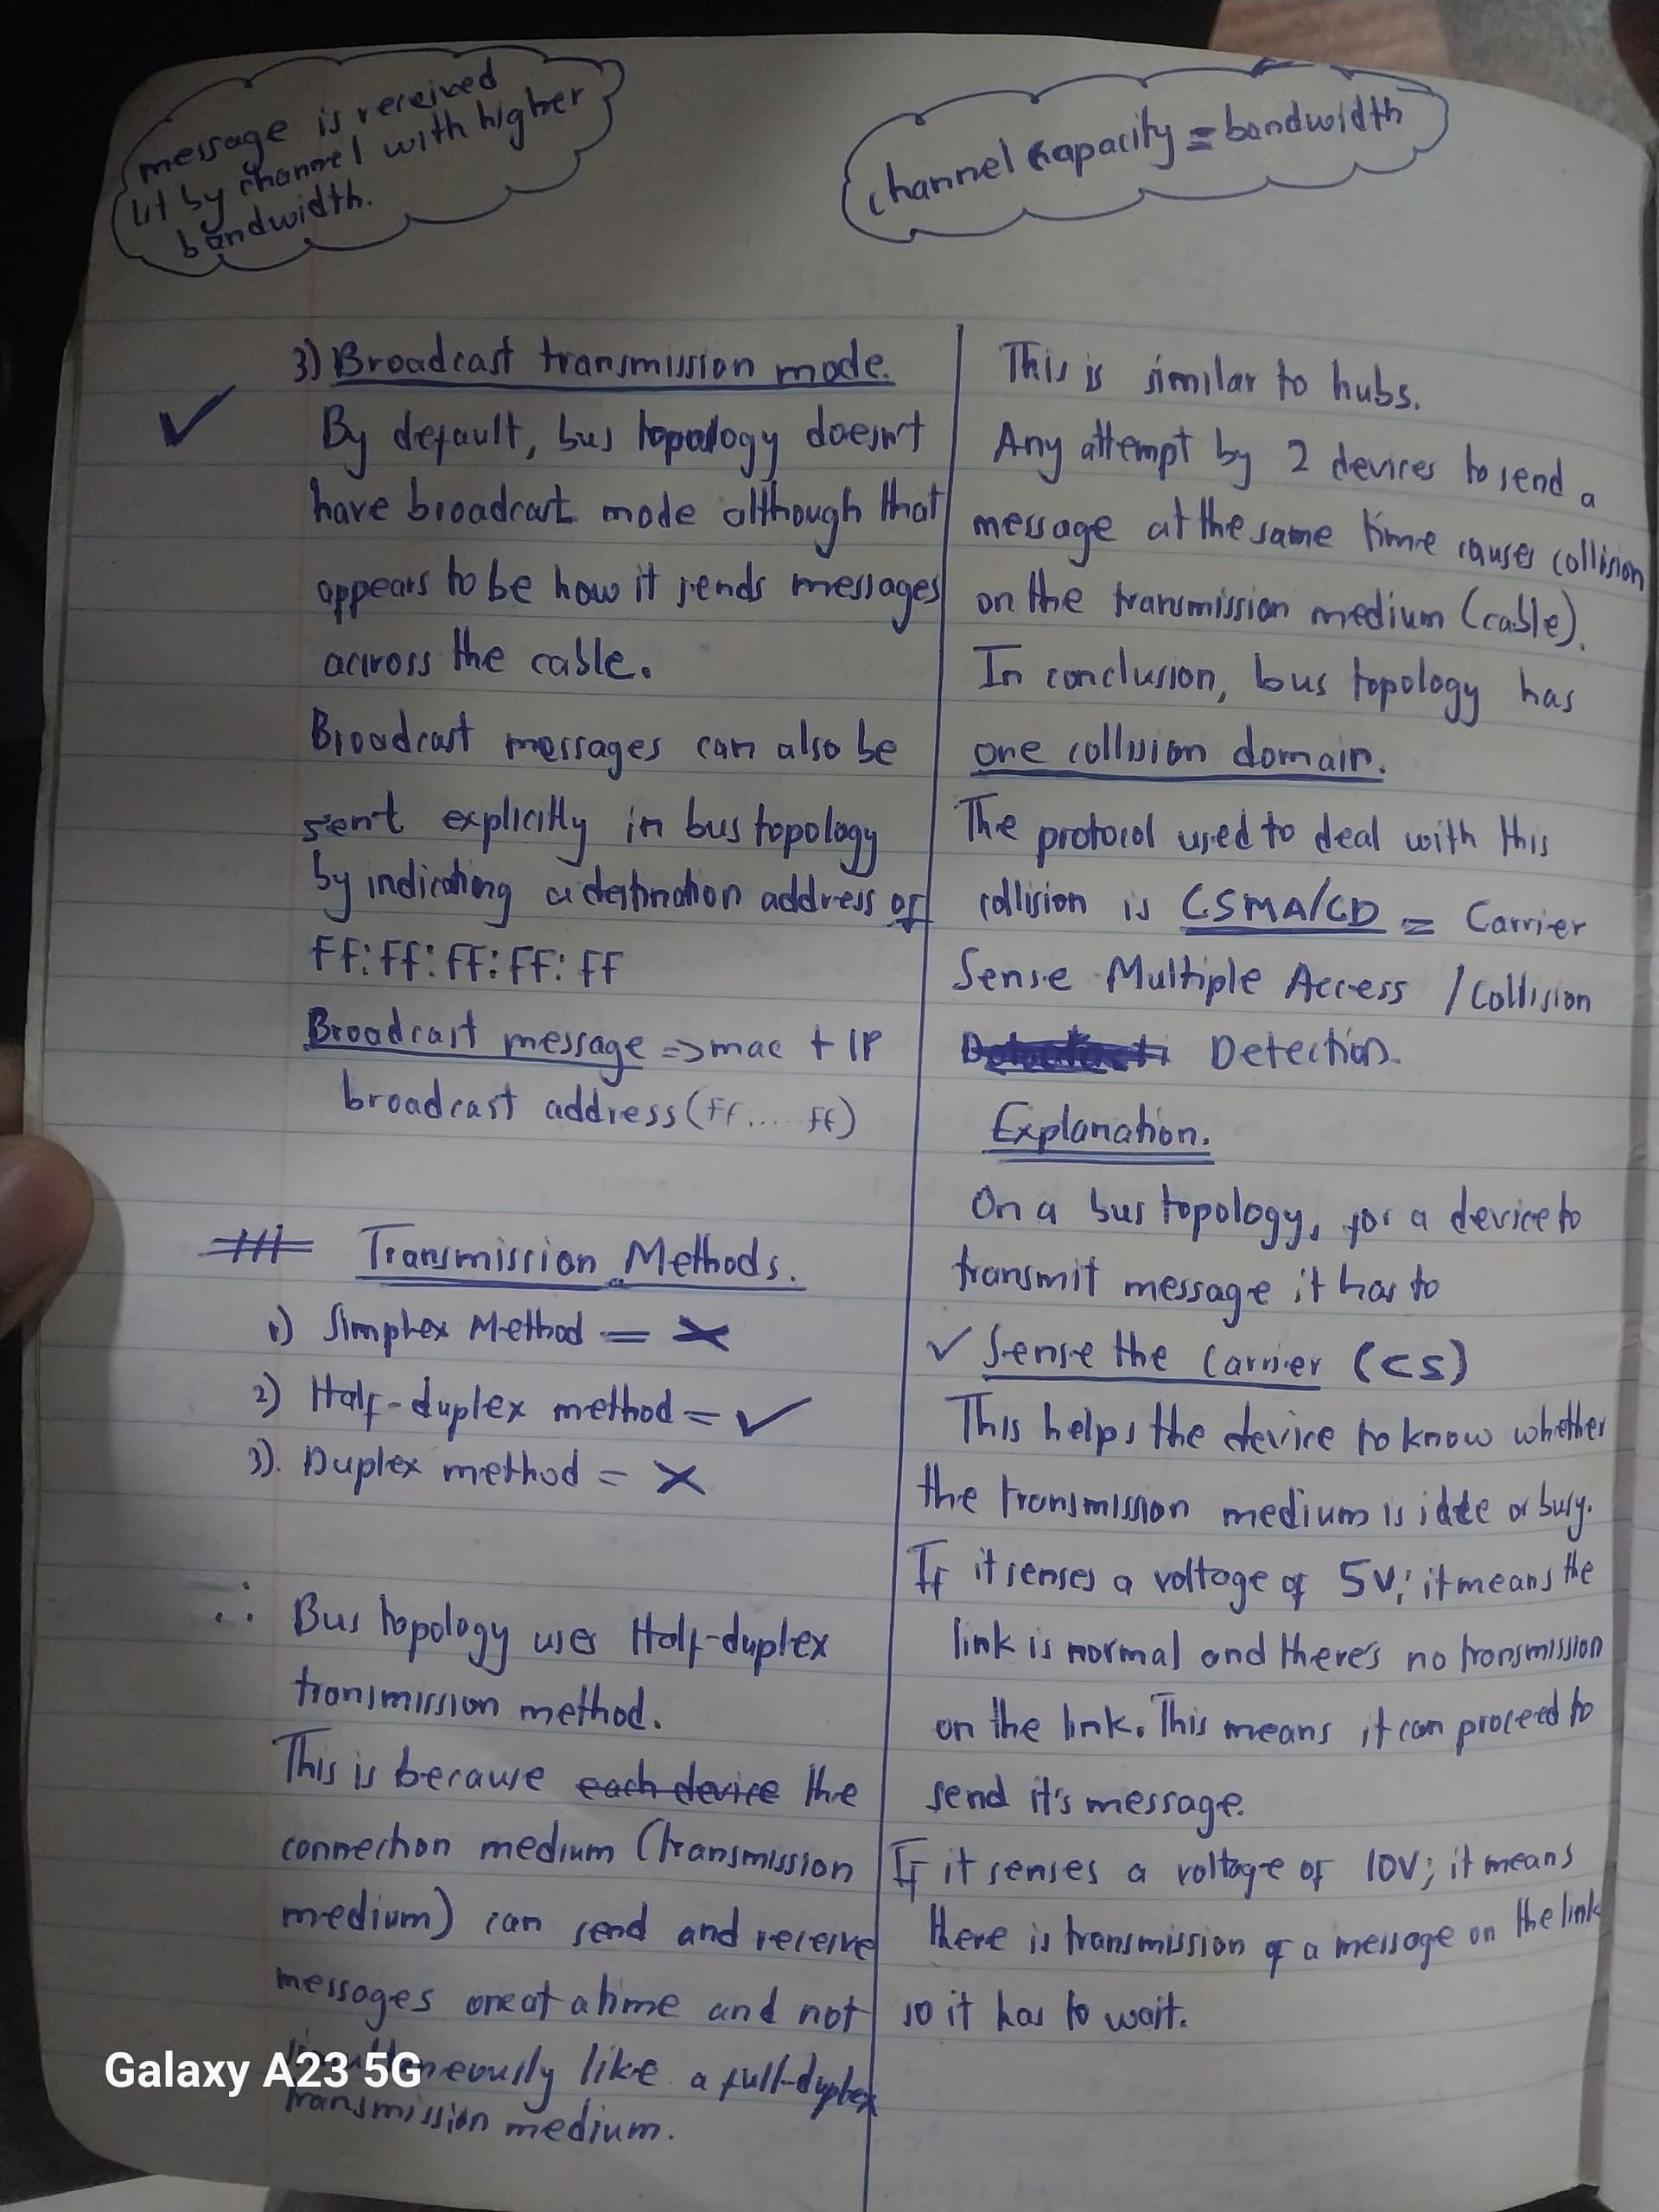 message is received
1st by channel with higher
bandwidth.
channel capacity = bandwidth
3) Broadcast transmission mode.
By default, bus topology doesn't
have broadcast mode although that
appears to be how it sends messages
across the cable.
Broadcast messages can also be
sent explicitly in bus topology
by indicating a destination address of
FF:FF:FF:FF:FF
Broadcast message => mac + IP
broadcast address (FF.... FF)
Transmission Methods.
1) Simplex Method = ×
2) Half-duplex method = ✓
3). Duplex method = ×
∴ Bus topology uses Half-duplex
transmission method.
This is because each device the
connection medium (transmission
medium) can send and receive
messages one at a time and not
simultaneously like a full-duplex
transmission medium.
This is similar to hubs.
Any attempt by 2 devices to send a
message at the same time causes collision
on the transmission medium (cable).
In conclusion, bus topology has
one collision domain.
The protocol used to deal with this
collision is CSMA/CD = Carrier
Sense Multiple Access / Collision
Detection.
Explanation.
On a bus topology, for a device to
transmit message it has to
✓ Sense the carrier (CS)
This helps the device to know whether
the transmission medium is idle or busy.
If it senses a voltage of 5V; it means the
link is normal and there's no transmission
on the link. This means it can proceed to
send it's message.
If it senses a voltage of 10V; it means
there is transmission of a message on the link
so it has to wait.
Galaxy A23 5G